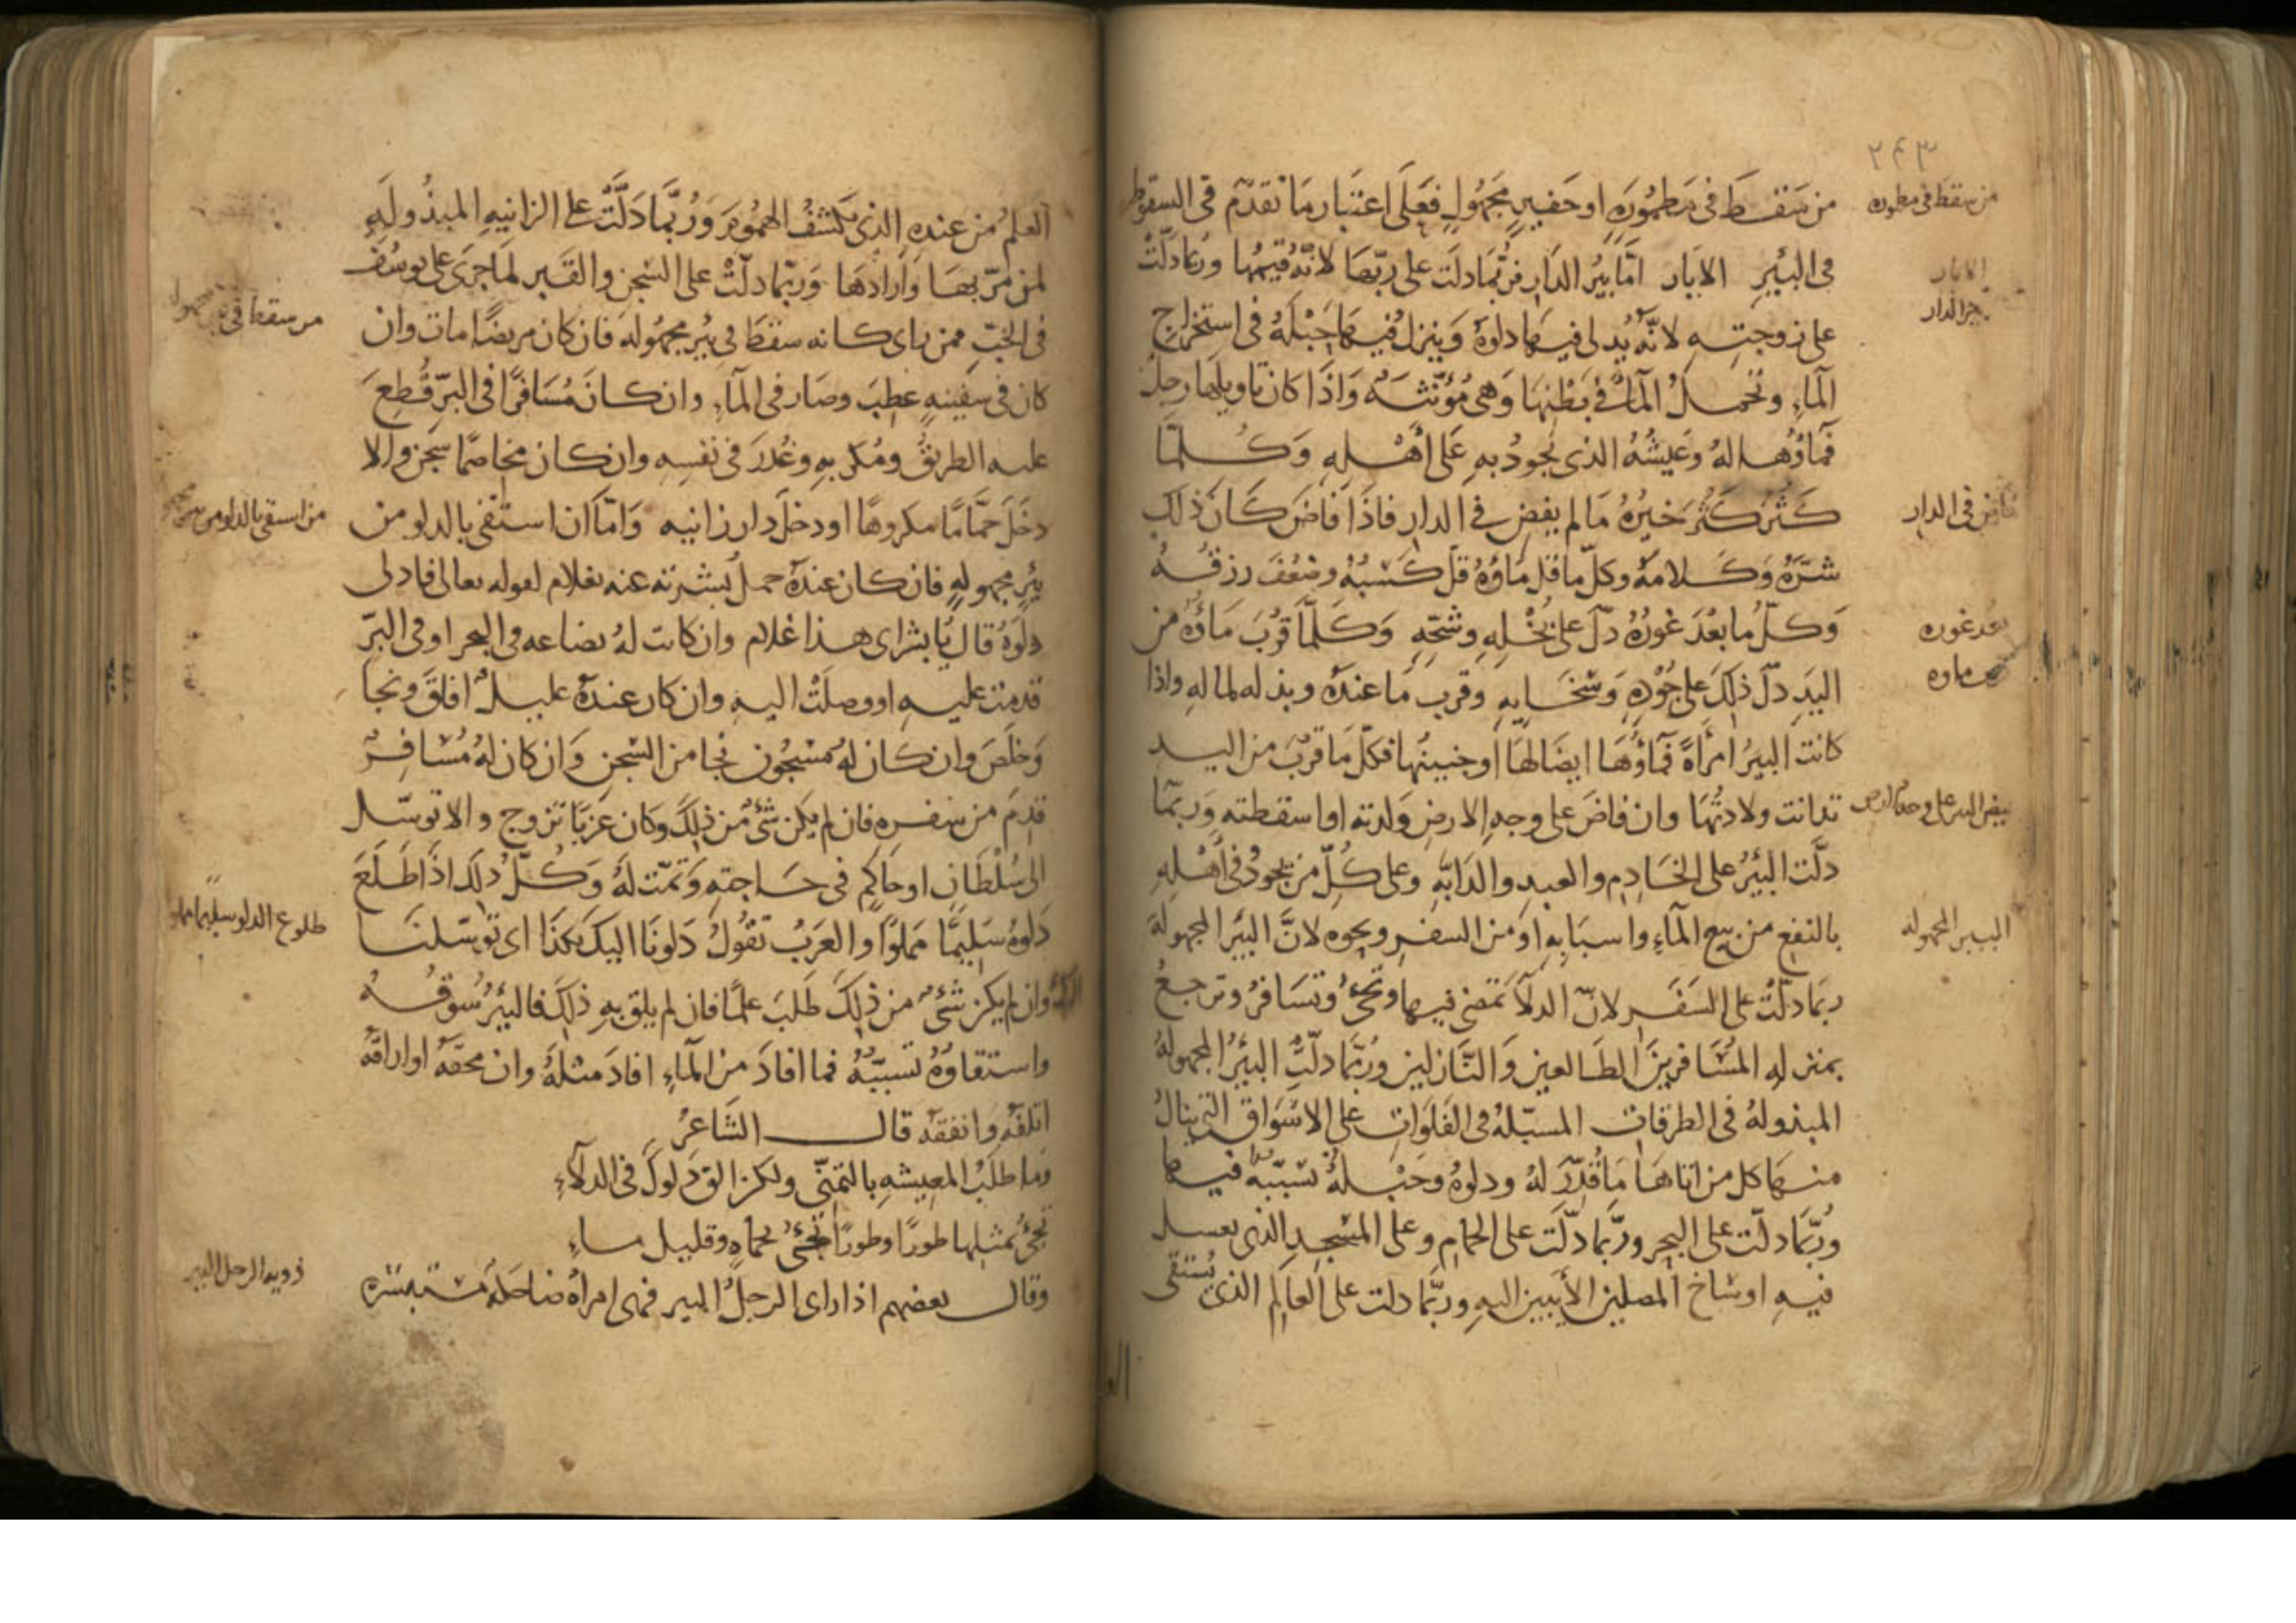 ٢٤٣
من سقط فى مطموره
من سَقَطَ فى مَطمُورَةٍ او حَفيرٍ مجَهُولٍ فعَلَى اعتبَار مَا تقدّم فى السقوط
الابار
فى البئيرِ الابار امَّا بيرُ الدَارِ فرُبَّمَا دلَت على ربّهَا لانّه قيّمُهَا ورُبمَا دَلّتْ
بير الدار
على زوجتِه لانّه يُدلى فيهَا دلوَهُ وَينزلُ فيهَا حَبْلَهُ فى استخراج
الْمآءِ وتحمِلُ المآءَ فى بَطْنِهَا وَهى مُؤنّثَه وَاذَا كان تاويلهَا رجلٌ
فمَاؤُهَا لهُ وعَيشُهُ الذى يَجُودُ بهِ عَلى اَهْلِهِ وَكُلمّا
فاض فى الدار
كَثُرَ كَثُرَ خيرُهُ مَا لم يفِضِ فى الدارِ فاذَا فاضَ كَانَ ذلك
شرّهُ وَكَلامهُ وكلّ ما قلَ مَاؤُهُ قلَّ كَسْبُهُ وضعُفَ رزقُهُ
بعد غوره
وَكلّ ما بعُدَ غورُهُ دلّ على بُخْلِهِ وشحّهِ وَكلّما قرُبَ مَاؤُهُ من
ماوه
اليَدِ دلّ ذلكَ على جُوْدِهِ وَسَخَايهِ وقرب مَا عندهُ وبذله لمالهِ واذا
كانت البيرُ امرَأةً فمَاؤُهَا ايضَا لهَا اوجنينُهَا فكلّ مَا قرُبَ من اليد
فيض البير على وجه الارض
تدانت ولادتُهَا وان فاضَ على وجهِ الارضِ وَلدته او اسقطته وَربمّا
دلَّت البِئرُ على الخَادِم والعبدِ والدَابّهِ وعلى كُلّ من يجودُ فى اَهْلِهِ
البير المجهوله
بالنفع من بيع الْمآءِ واسبَابهِ او من السفر ونحوه لانَّ البئرَ المجهولة
ربمَا دلّتْ على السَفَر لانّ الدِلآ تمضى فيها وتجئُ وتسَافرُ وترجعُ
بمنزلهِ المُسَافرينَ الطَالعين وَالنّازلين ورُبّمَا دلّتِ البئرُ المجهوله
المبذولهُ فى الطرقات المسبّلهُ فى الفَلَوات على الاسْوَاق التى ينالُ
منهَا كل من اتاهَا مَا قُدّرَ لهُ ودلوهُ وحَبْلهُ تسَبّبهُ فيهَا
ورُبّمَا دلّت على البحر ورُبّمَا دلّت على الحمام وعلى المسْجِدِ الذى يغسل
فيهِ اوسَاخ المصلين الآيبين اليهِ وربّمَا دلت على العالِم الذى يُستقى
العلمُ من عندِهِ الذى يَكْشفُ الهمُومَ وَرُبَّمَا دَلّتْ على الزانيهِ المبذُولَهِ
لمن مَرّ بهَا وَارادَهَا وَربّمَا دلّتْ على السّجن والقَبر لمَا جرَى على يوسُفَ
من سقط فى بير مجهوله
فى الجبّ فمن راى كانه سقطَ فى بِئْر مجهُولهِ فان كان مريضًا مات وان
كان فى سَفِينهٍ عطِبَ وصَار فى الْمآءِ وان كانَ مُسَافرًا فى البرّ قُطِعَ
عليه الطريقُ ومُكِرَ بهِ وغُدرَ فى نفسِهِ وان كان مخاصمًا سُجن والا
من استقى بالدلو من بير
دخَلَ حمَّامًا مكروهًا او دخلَ دار زانيه وَامّا ان استقى بالدلو من
بئرٍ مجهولهٍ فان كان عندهُ حملٌ بُشرَ به عنه بغلام لقوله تعالى فادلى
دلوَهُ قال يَا بشراى هذا غلام وان كانت لهُ بضاعه فى البحر او فى البرّ
قدمت عليه او وصلَتْ اليه وان كان عندهُ عليلٌ افاقَ ونجا
وَخلَصَ وان كان لهُ مسْجُون نجا من السّجن وَان كان لهُ مُسَافِرٌ
قدِمَ من سفره فان لم يكن شىٌ من ذلكَ وكان عزبًا تزوج والا توسّل
الى سُلْطَانٍ او حَاكمٍ فى حَاجتهِ وَتمّت لهُ وَكُلّ ذلك اذَا طَلَعَ
طلوع الدلو سليمًا مملوا
دَلوهُ سَليمًا مَملوًا والعَرَبُ تقُولُ دَلونَا اليكَ بكذَا اى توَسّلنا
اليك وان لم يكن شىٌ من ذلكَ طَلبَ علمًا فان لم يلق بهِ ذلكَ فالبئرُ سُوقُهُ
واستقاؤهُ تسببُّهُ فما افادَ من الْمآءِ افادَ مثلهُ وان محقهُ او اراقهُ
اتلفهُ وَانفقهُ قال الشَاعرُ
وَما طلبُ المعِيشهِ بالتمنّى ولكن الق دَلوكَ فى الدلآءِ
تجئُ بمثلِها طورًا وطورًا تجئُ بحمأهٍ وقليل ماءِ
رويه الرجل البير
وقال بعضهم اذا راى الرجلُ البير فهى امراهٌ ضاحكهُ مستبشره